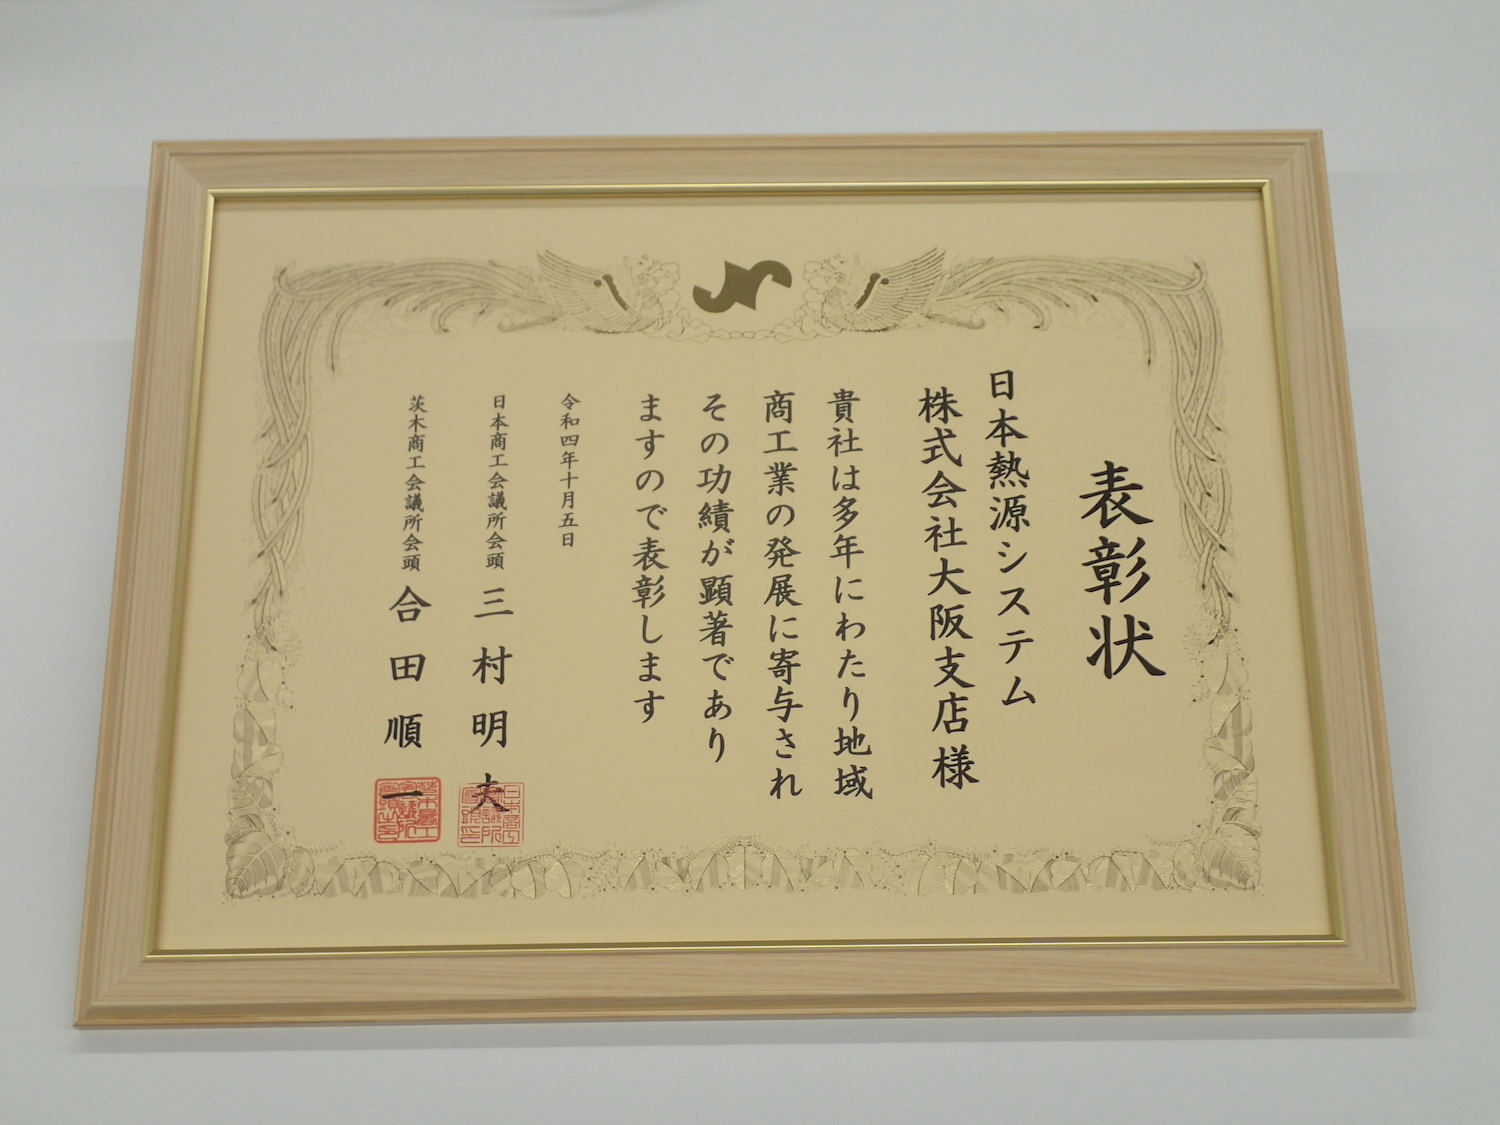 表彰状
日本熱源システム
株式会社大阪支店様
貴社は多年にわたり地域
商工業の発展に寄与され
その功績が顕著であり
ますので表彰します
令和四年十月五日
日本商工会議所会頭 三村明夫
茨木商工会議所会頭 合田順一